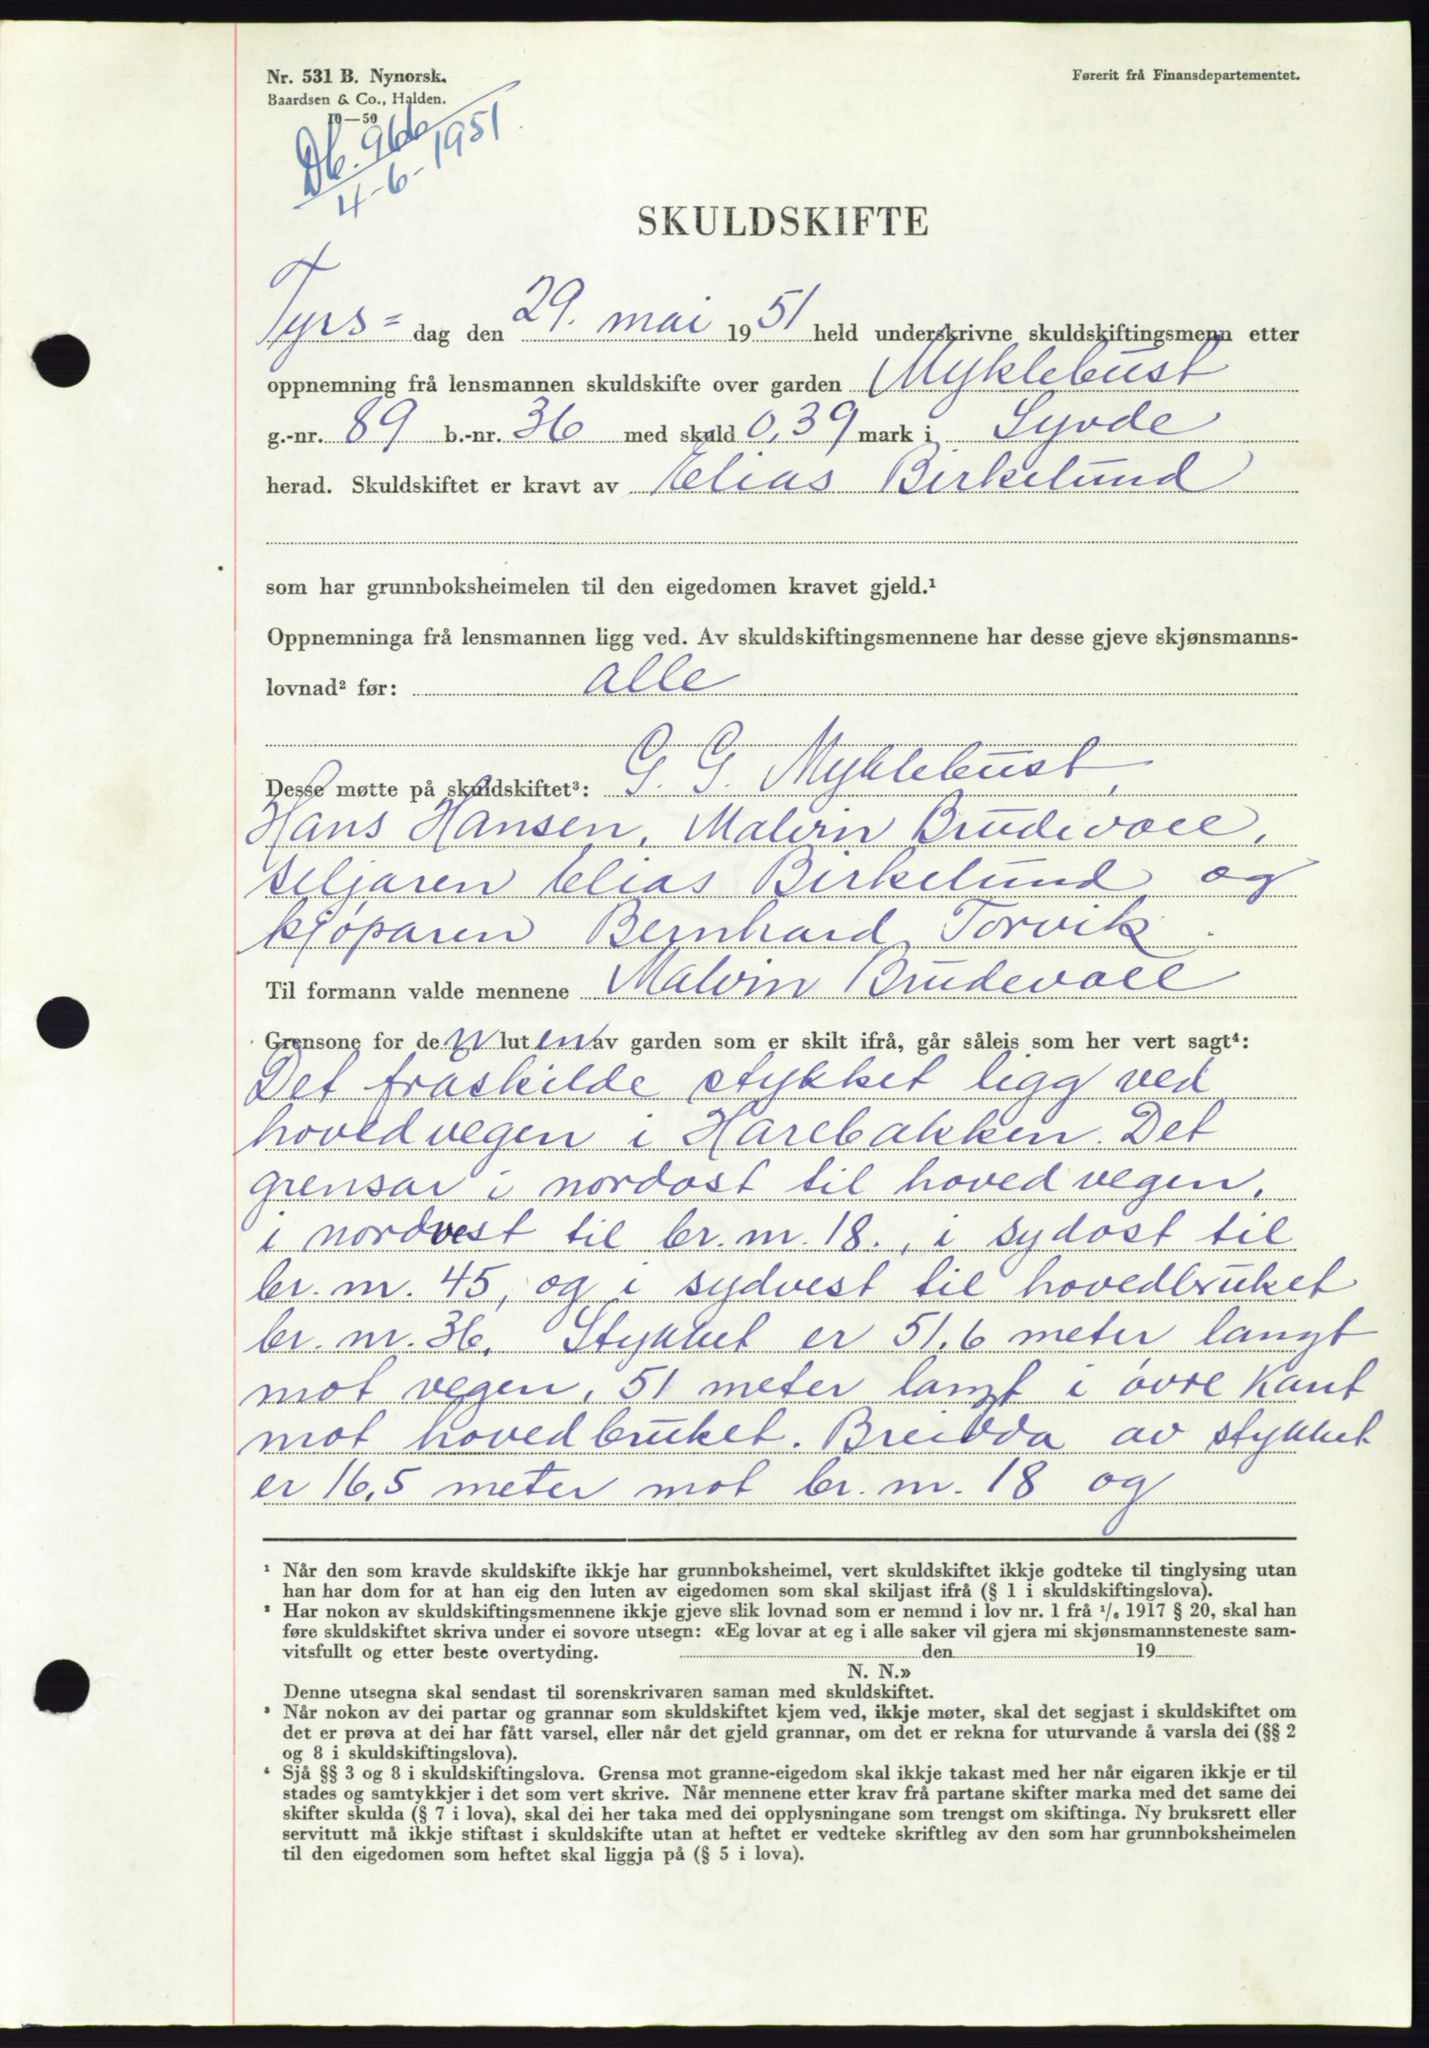 Nr. 531 B. Nynorsk.
Førerit frå Finansdepartementet.
Baardsen & Co., Halden.
10—50
Db. 966
4-6-1951
SKULDSKIFTE
Tyrs= dag den 29. mai 1951 held underskrivne skuldskiftingsmenn etter
oppnemning frå lensmannen skuldskifte over garden Myklebust
g.-nr. 89 b.-nr. 36 med skuld 0,39 mark i Syvde
herad. Skuldskiftet er kravt av Elias Birkelund
som har grunnboksheimelen til den eigedomen kravet gjeld.¹
Oppnemninga frå lensmannen ligg ved. Av skuldskiftingsmennene har desse gjeve skjønsmanns-
lovnad² før: alle
Desse møtte på skuldskiftet³: G. G. Myklebust,
Hans Hansen, Malvin Brudevoll,
seljaren Elias Birkelund og
kjøparen Bernhard Torvik.
Til formann valde mennene Malvin Brudevoll
Grensone for den luten av garden som er skilt ifrå, går såleis som her vert sagt⁴:
Det fråskilde stykket ligg ved
hovedvegen i Harebakken. Det
grensar i nordost til hovedvegen,
i nordvest til br. nr. 18., i sydost til
br. nr. 45, og i sydvest til hovedbruket
br. nr. 36. Stykket er 51,6 meter langt
mot vegen, 51 meter langt i øvre kant
mot hovedbruket. Breidda av stykket
er 16,5 meter mot br. nr. 18 og
¹ Når den som kravde skuldskifte ikkje har grunnboksheimel, vert skuldskiftet ikkje godteke til tinglysing utan
han har dom for at han eig den luten av eigedomen som skal skiljast ifrå (§ 1 i skuldskiftingslova).
² Har nokon av skuldskiftingsmennene ikkje gjeve slik lovnad som er nemnd i lov nr. 1 frå ¹/₆ 1917 § 20, skal han
føre skuldskiftet skriva under ei sovore utsegn: «Eg lovar at eg i alle saker vil gjera mi skjønsmannsteneste sam-
vitsfullt og etter beste overtyding. den 19
N. N.»
Denne utsegna skal sendast til sorenskrivaren saman med skuldskiftet.
³ Når nokon av dei partar og grannar som skuldskiftet kjem ved, ikkje møter, skal det segjast i skuldskiftet om
det er prøva at dei har fått varsel, eller når det gjeld grannar, om det er rekna for uturvande å varsla dei (§§ 2
og 8 i skuldskiftingslova).
⁴ Sjå §§ 3 og 8 i skuldskiftingslova. Grensa mot granne-eigedom skal ikkje takast med her når eigaren ikkje er til
stades og samtykkjer i det som vert skrive. Når mennene etter krav frå partane skifter marka med det same dei
skifter skulda (§ 7 i lova), skal dei her taka med dei opplysningane som trengst om skiftinga. Ny bruksrett eller
servitutt må ikkje stiftast i skuldskifte utan at heftet er vedteke skriftleg av den som har grunnboksheimelen
til den eigedomen som heftet skal liggja på (§ 5 i lova).